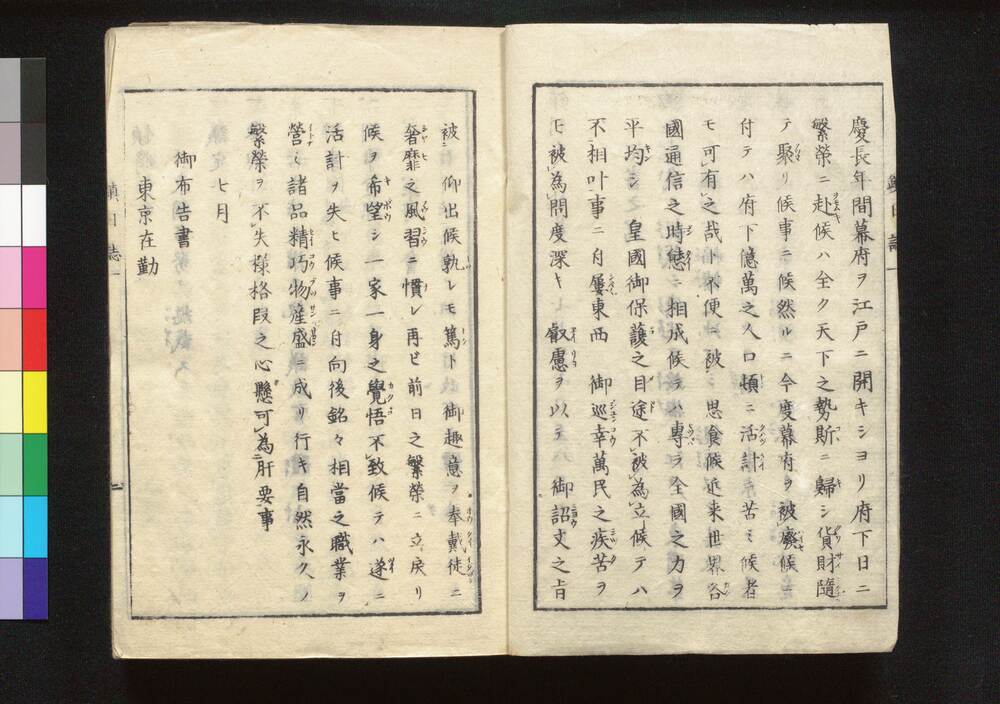 慶長年間幕府ヲ江戸ニ開キシヨリ府下日ニ
繁榮ニ赴候ハ全ク天下之勢斯ニ歸シ貨財隨
テ聚リ候事ニ候然ルニ今度幕府ヲ被廢候ニ
付テハ府下億萬之人口頓ニ活計ニ苦ミ候者
モ可有之哉ト不便ニ被思食候近来世界各
國通信之時態ニ相成候テハ專ラ全國之力ヲ
平均シ皇國御保護之目途不被為立候テハ
不相叶事ニ付屢東西御巡幸萬民之疾苦ヲ
モ被為問度深キ叡慮ヲ以テ御詔文之旨
鎮日誌
被仰出候孰レモ篤ト御趣意ヲ奉戴徒ニ
奢靡之風習ニ慣レ再ビ前日之繁榮ニ立戻リ
候ヲ希望シ一家一身之覺悟不致候テハ遂ニ
活計ヲ失ヒ候事ニ付向後銘々相當之職業ヲ
營ミ諸品精巧物産盛ニ成リ行キ自然永久ノ
繁榮ヲ不失様格段之心懸可為肝要事
七月
御布告書
東京在勤
鎮日誌